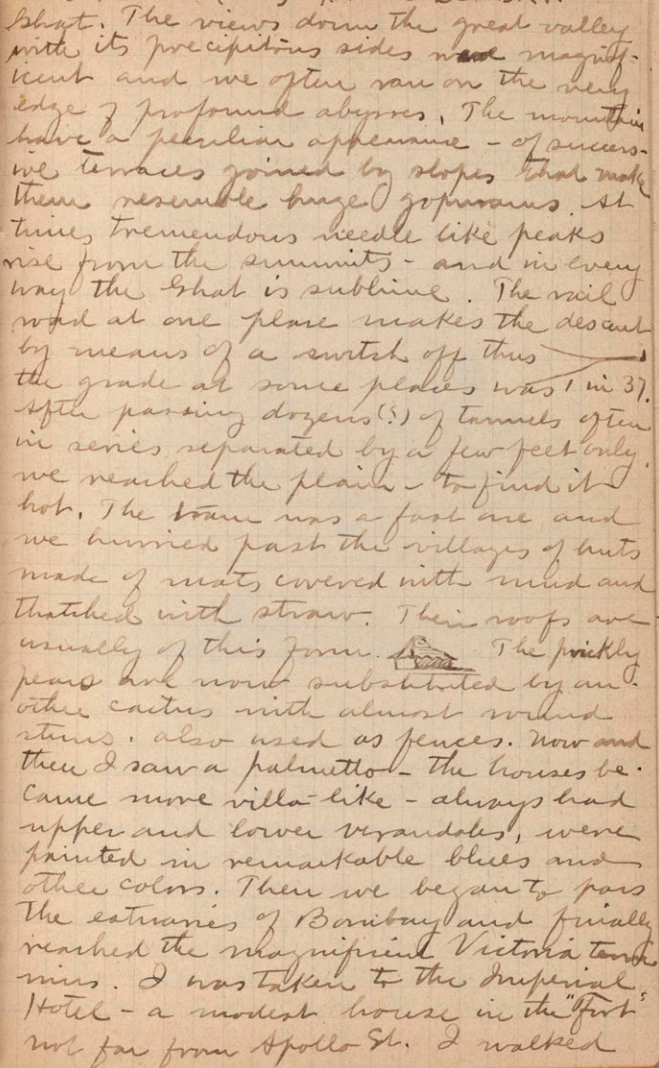 Ghat. The views down the great valley
with its precipitous sides was magnif-
icent and we often ran on the very
edge of profound abysses. The mountains
have a peculiar appearance – of success-
ive terraces joined by slopes that make
them resemble huge gopurams. At
times tremendous needle like peaks
rise from the summits – and in every
way the Ghat is sublime. The rail
road at one place makes the descent
by means of a switch off thus
the grade at some places was 1 in 37.
After passing dozens (?) of tunnels often
in series separated by a few feet only,
we reached the plain – to find it
hot. The train was a fast one and
we hurried past the villages of huts
made of mats covered with mud and
thatched with straw. Their roofs are
usually of this form. The prickly
pears are now substituted by an-
other cactus with almost round
stems. also used as fences. Now and
then I saw a palmetto – the houses be-
came more villa-like – always had
upper and lower verandahs, were
painted in remarkable blues and
other colors. Then we began to pass
the estuaries of Bombay and finally
reached the magnificent Victoria termi
nus. I was taken to the Imperial
Hotel – a modest house in the "Fort"
not far from Apollo St. I walked